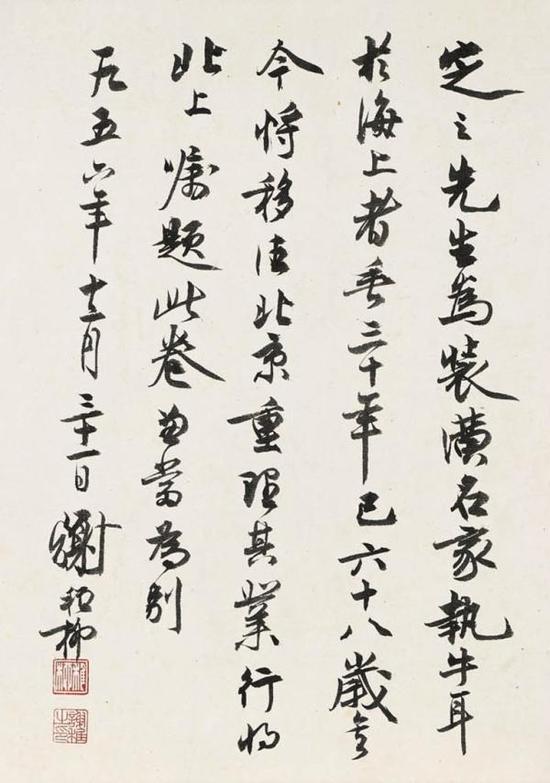 定之先生為裝潢名家執牛耳
於海上者垂三十年已六十八歲矣
今将移住北京重理其業行将
北上嘱题此卷即當為别
一九五六年十二月三十一日謝稚柳